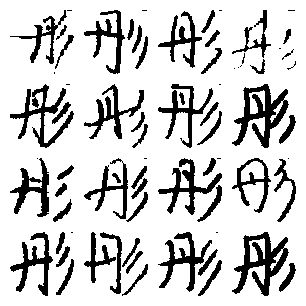 彤彤彤彤
彤彤彤彤
彤彤彤彤
彤彤彤彤